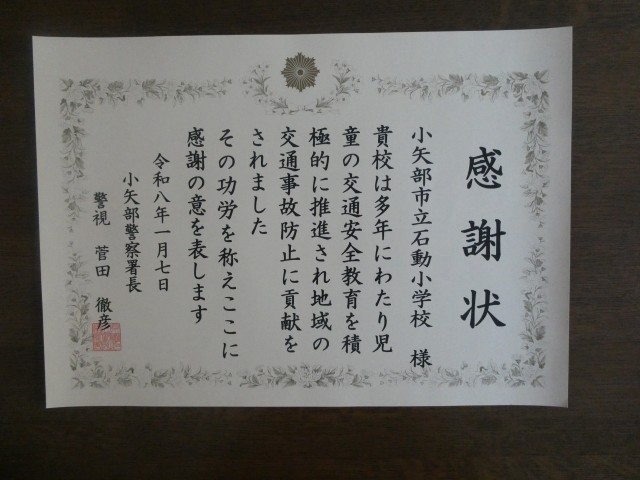 感謝状
小矢部市立石動小学校 様
貴校は多年にわたり児
童の交通安全教育を積
極的に推進され地域の
交通事故防止に貢献を
されました
その功労を称えここに
感謝の意を表します
令和八年一月七日
小矢部警察署長
警視 菅田 徹彦